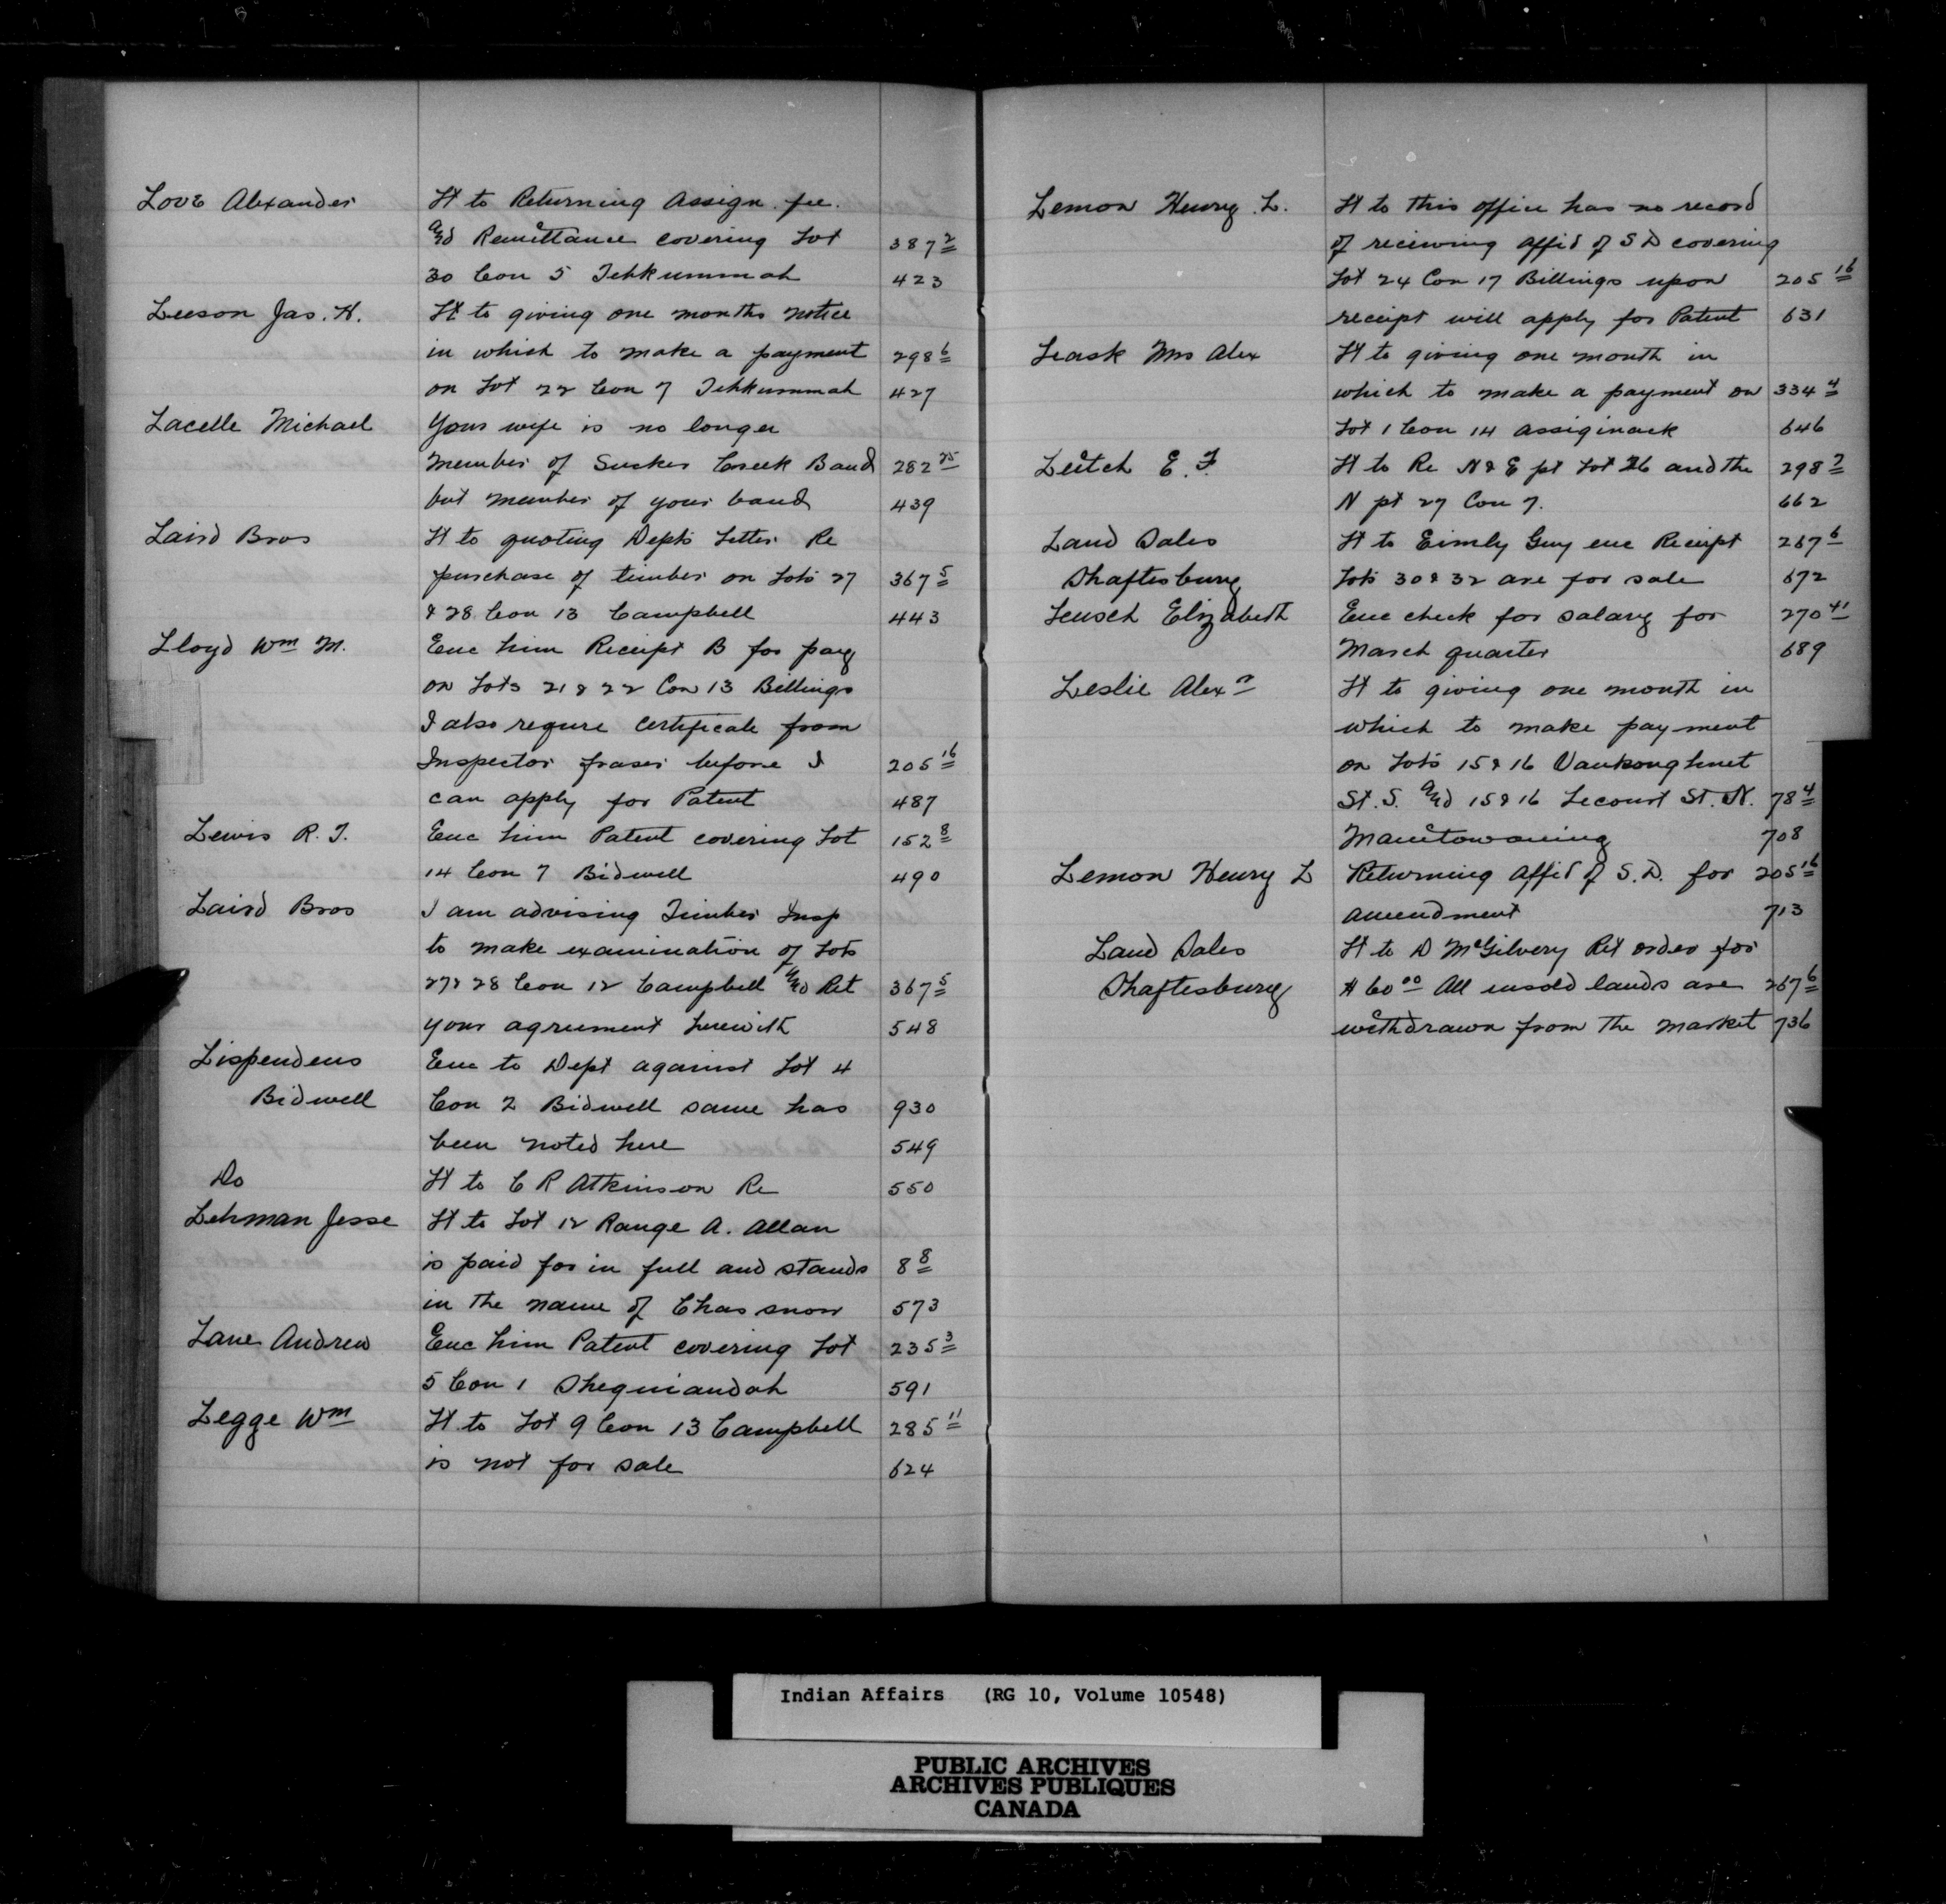 Love Alexander Lt to Returning Assign. fee.
and Remittance covering Lot 387 2
30 Con 5 Tehkummah 423
Leeson Jas. H. Lt to giving one months notice
in which to make a payment 298 6
on Lot 22 Con 7 Tehkummah 427
Lacelle Michael Your wife is no longer
member of Sucker Creek Band 282 25
but member of your band 439
Laird Bros Lt to quoting Depts Letter Re
purchase of timber on Lots 27 367 5
& 28 Con 13 Campbell 443
Lloyd Wm M. Enc him Receipt B for pay
on Lots 21 & 22 Con 13 Billings
I also require certificate from
Inspector Fraser before I 205 16
can apply for Patent 487
Lewis R. J. Enc him Patent covering Lot 152 8
14 Con 7 Bidwell 490
Laird Bros I am advising Timber Insp
to make examination of Lots
27 & 28 Con 12 Campbell and Ret 367 5
your agreement herewith 548
Lispendens Enc to Dept against Lot 4
Bidwell Con 2 Bidwell same has 930
been noted here 549
Do Lt to C R Atkinson Re 550
Lehman Jesse Lt to Lot 12 Range A. Allan
is paid for in full and stands 8 8
in the name of Chas Snow 573
Lane Andrew Enc him Patent covering Lot 235 3
5 Con 1 Sheguiandah 591
Legge Wm Lt to Lot 9 Con 13 Campbell 285 11
is not for sale 624
Lemon Henry L. Lt to this office has no record
of receiving Affid of S D covering
Lot 24 Con 17 Billings upon 205 16
receipt will apply for Patent 631
Leask Mrs Alex Lt to giving one month in
which to make a payment on 334 4
Lot 1 Con 14 Assiginack 646
Leitch E. F. Lt to Re N & E pt Lot 26 and the 298 7
N pt 27 Con 7. 662
Land Sales Lt to Eimly Guy enc Receipt 267 6
Shaftesbury Lots 30 & 32 are for sale 672
Leusch Elizabeth Enc check for salary for 270 41
March quarter 689
Leslie Alexr Lt to giving one month in
which to make payment
on Lots 15 & 16 Vankoughnet
St. S. and 15 & 16 Lecourt St. N. 78 4
Manitowaning 708
Lemon Henry L Returning Affid of S. D. for 205 16
amendment 713
Land Sales Lt to D McGilvery Ret order for
Shaftesbury $60 00 All unsold lands are 267 6
withdrawn from the market 736
Indian Affairs (RG 10, Volume 10548)
PUBLIC ARCHIVES
ARCHIVES PUBLIQUES
CANADA